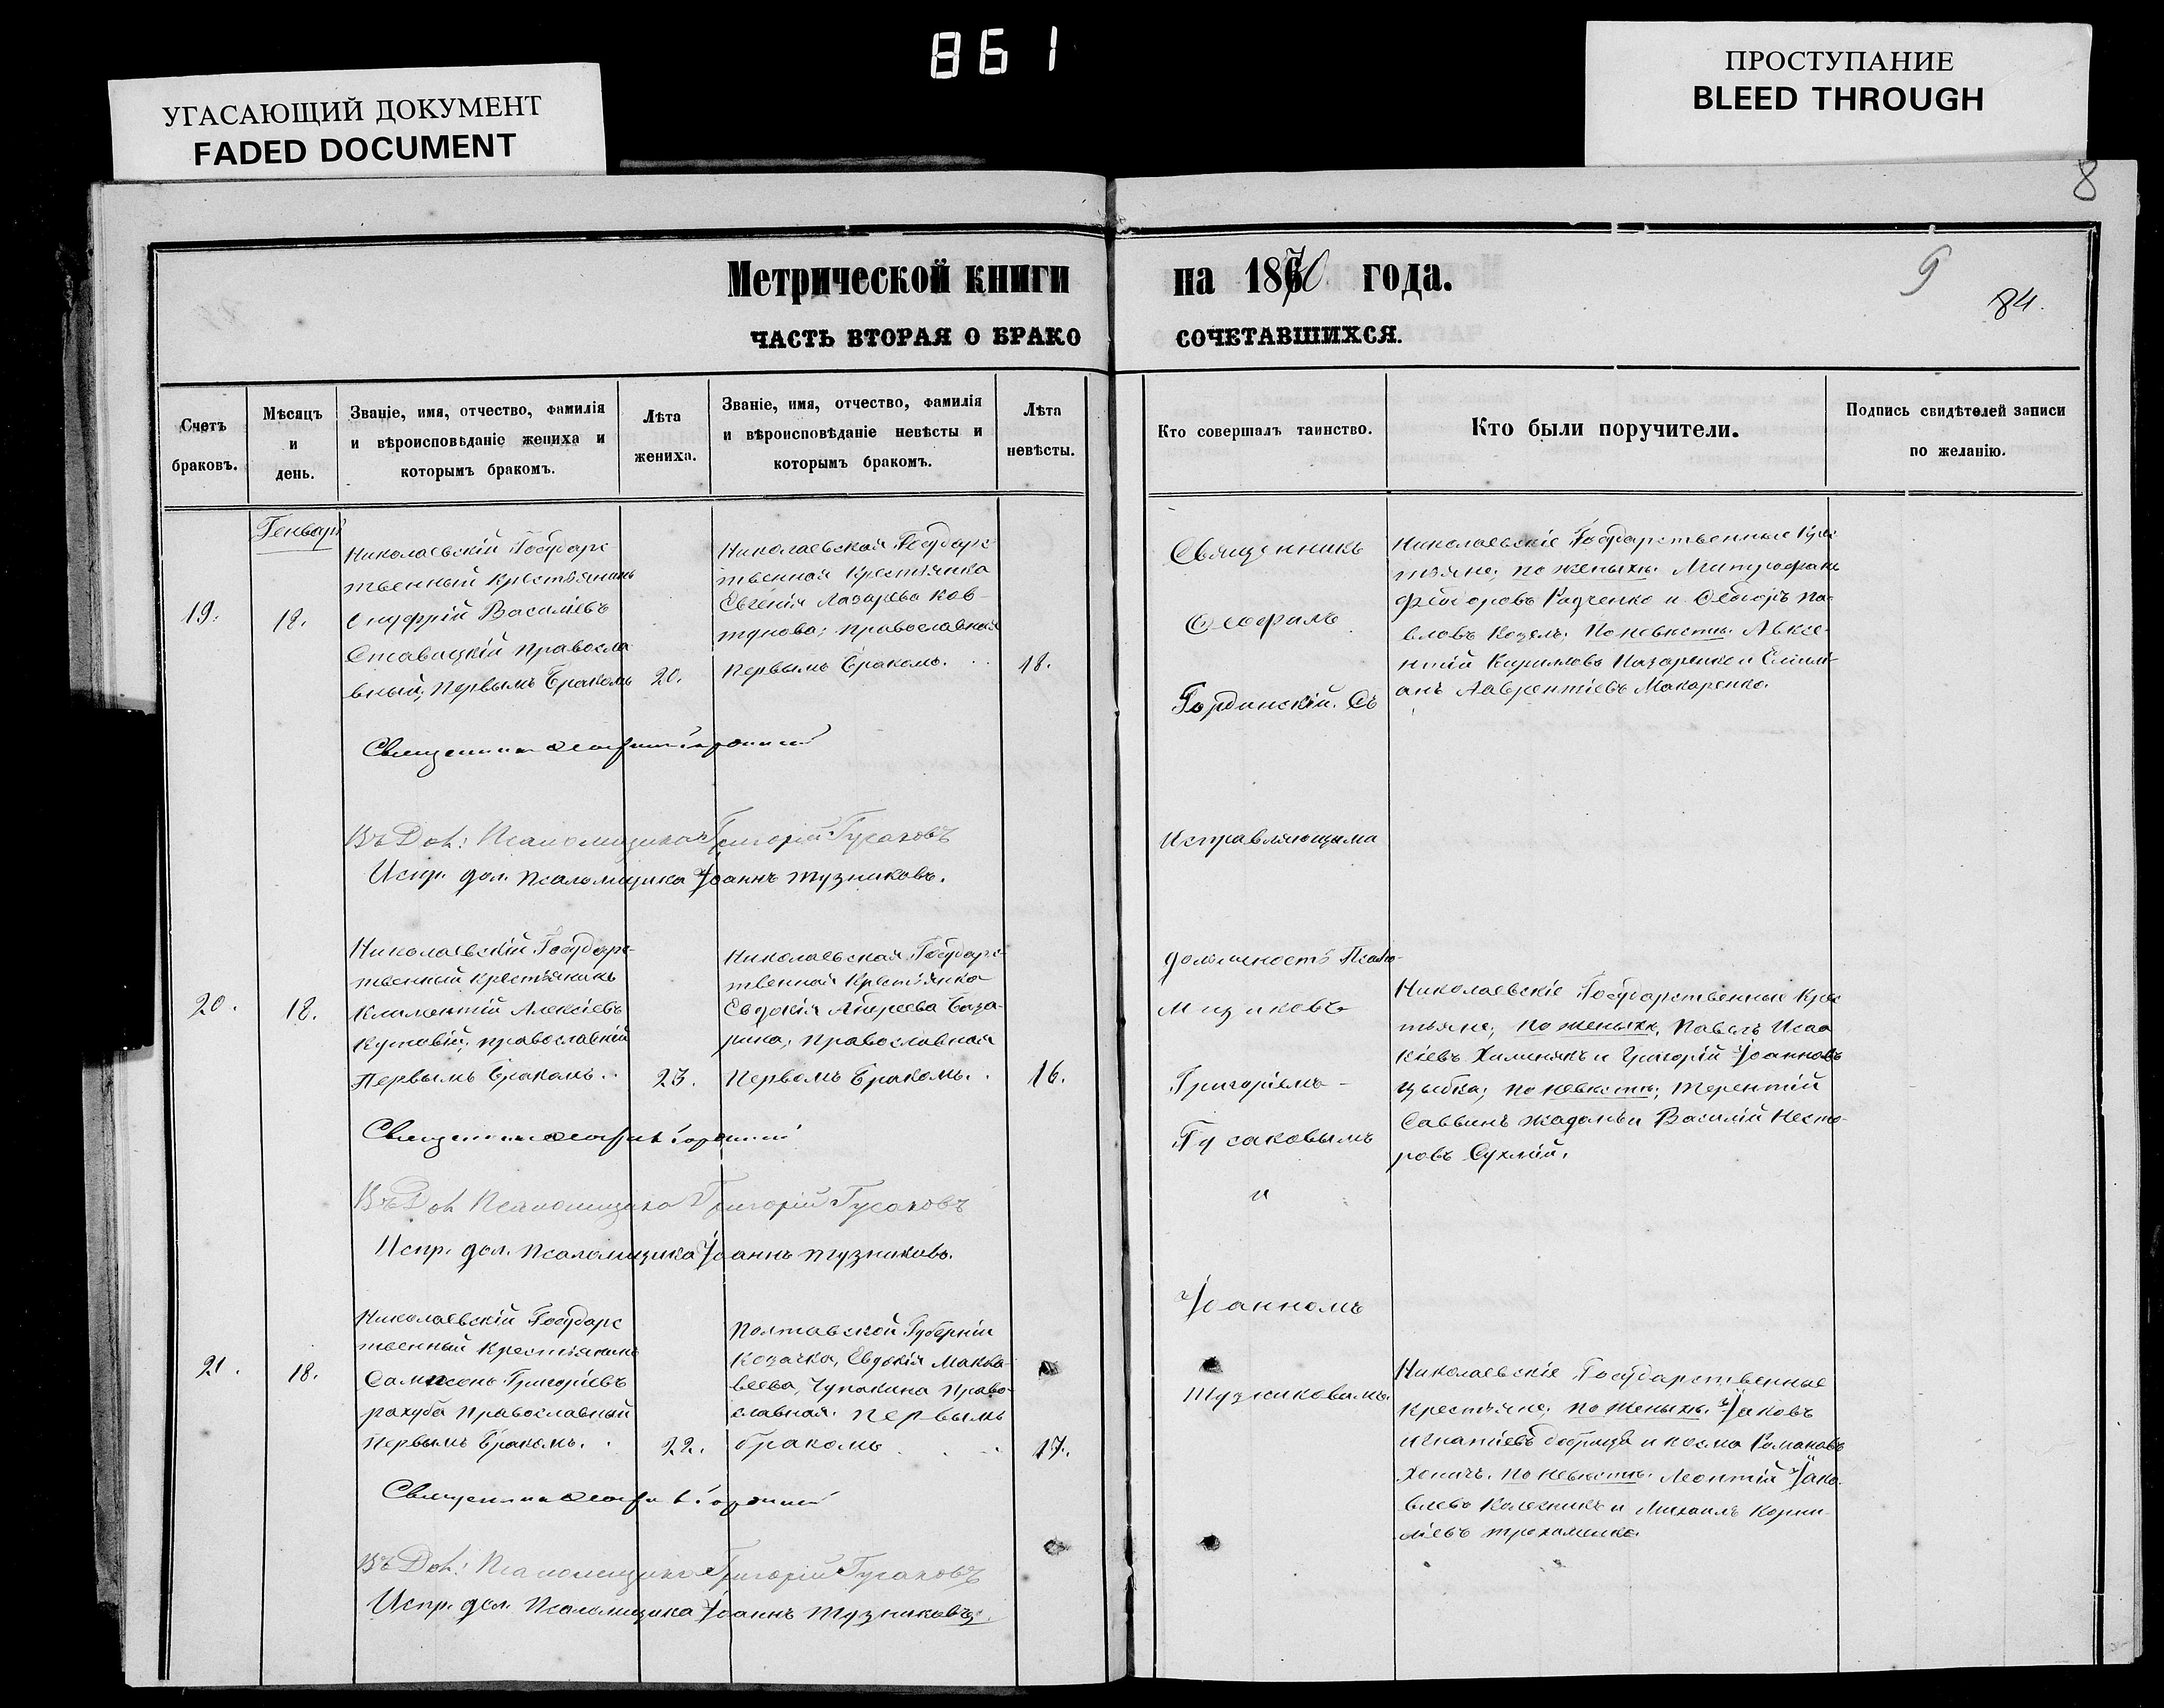 861
УГАСАЮЩИЙ ДОКУМЕНТ
FADED DOCUMENT
ПРОСТУПАНИЕ
BLEED THROUGH
8
Метрической книги на 1870 года.
9
84.
ЧАСТЬ ВТОРАЯ О БРАКО СОЧЕТАВШИХСЯ.
Счетъ браковъ.
Мѣсяцъ и день.
Званіе, имя, отчество, фамилія и вѣроисповѣданіе жениха и которымъ бракомъ.
Лѣта жениха.
Званіе, имя, отчество, фамилія и вѣроисповѣданіе невѣсты и которымъ бракомъ.
Лѣта невѣсты.
Кто совершалъ таинство.
Кто были поручители.
Подпись свидѣтелей записи по желанію.
Генварь
19.
18.
Николаевскій Государс
твенный крестьянинъ
Онуфрій Василіевъ
Ставицкій правосла
вный; первымъ бракомъ
20.
Николаевская Государс
твенная крестьянка
Евгенія Лазарева Ков-
тунова; православная
первымъ бракомъ.
18.
Священникъ
Ѳеофилъ
Гординскій. Съ
Николаевскіе Государственные крес
тьяне; по женихѣ: Митрофанъ
Ѳеодоровъ Радченко и Ѳеодоръ Па-
вловъ Козелъ. По невѣстѣ: Авксе-
нтій Кирилловъ Назаренко и Емили-
анъ Лаврентіевъ Макаренко.
Священникъ Ѳеофилъ Гординскій
Въ Дол: Псаломщика Григорій Гусаковъ
Испр. дол. Псаломщика Іоаннъ Тузниковъ.
Исправляющими
20.
18.
Николаевскій Государс-
твенный крестьянинъ
Климентій Алексіевъ
православный
Первымъ бракомъ.
23.
Николаевская Государс-
твенная крестьянка
Евдокія Андреева
православная
Первомъ бракомъ.
16.
должность Псало-
мщиковъ
Григоріемъ
Гусаковымъ
и
Николаевскіе Государственные крес
тьяне; по женихѣ, Павелъ Исаа
кіевъ Химинякъ и Григорій Іоанновъ
Цыбка; по невѣстѣ; Терентій
Саввинъ Жаданъ и Василій Несто-
ровъ Сухлій.
Священникъ Ѳеофилъ Гординскій
Въ Дол Псаломщика Григорій Гусаковъ
Испр. дол. Псаломщика Іоаннъ Тузниковъ.
Іоанномъ
21.
18.
Николаевскій Государс
твенный крестьянинъ
Сампсонъ Григоріевъ
Рахуба православный
Первымъ бракомъ.
22.
Полтавской Губерніи
козачка, Евдокія Матвѣ
еева, Чупахина право-
славная. первымъ
бракомъ
17.
Тузниковымъ.
Николаевскіе Государственные
крестьяне; по женихѣ. Іаковъ
Игнатіевъ и Косма Романовъ
по невѣстѣ. Леонтій Іако-
влевъ Колесникъ и Михаилъ Корни-
ліевъ Трохименко.
Священникъ Ѳеофилъ Гординскій
Въ Дол: Псаломщика Григорій Гусаковъ
Испр. дол. Псаломщика Іоаннъ Тузниковъ.